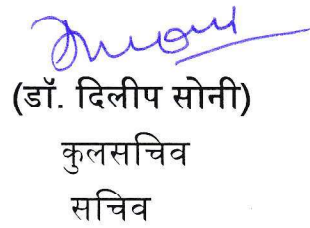 (डॉ. दिलीप सोनी)
कुलसचिव
सचिव